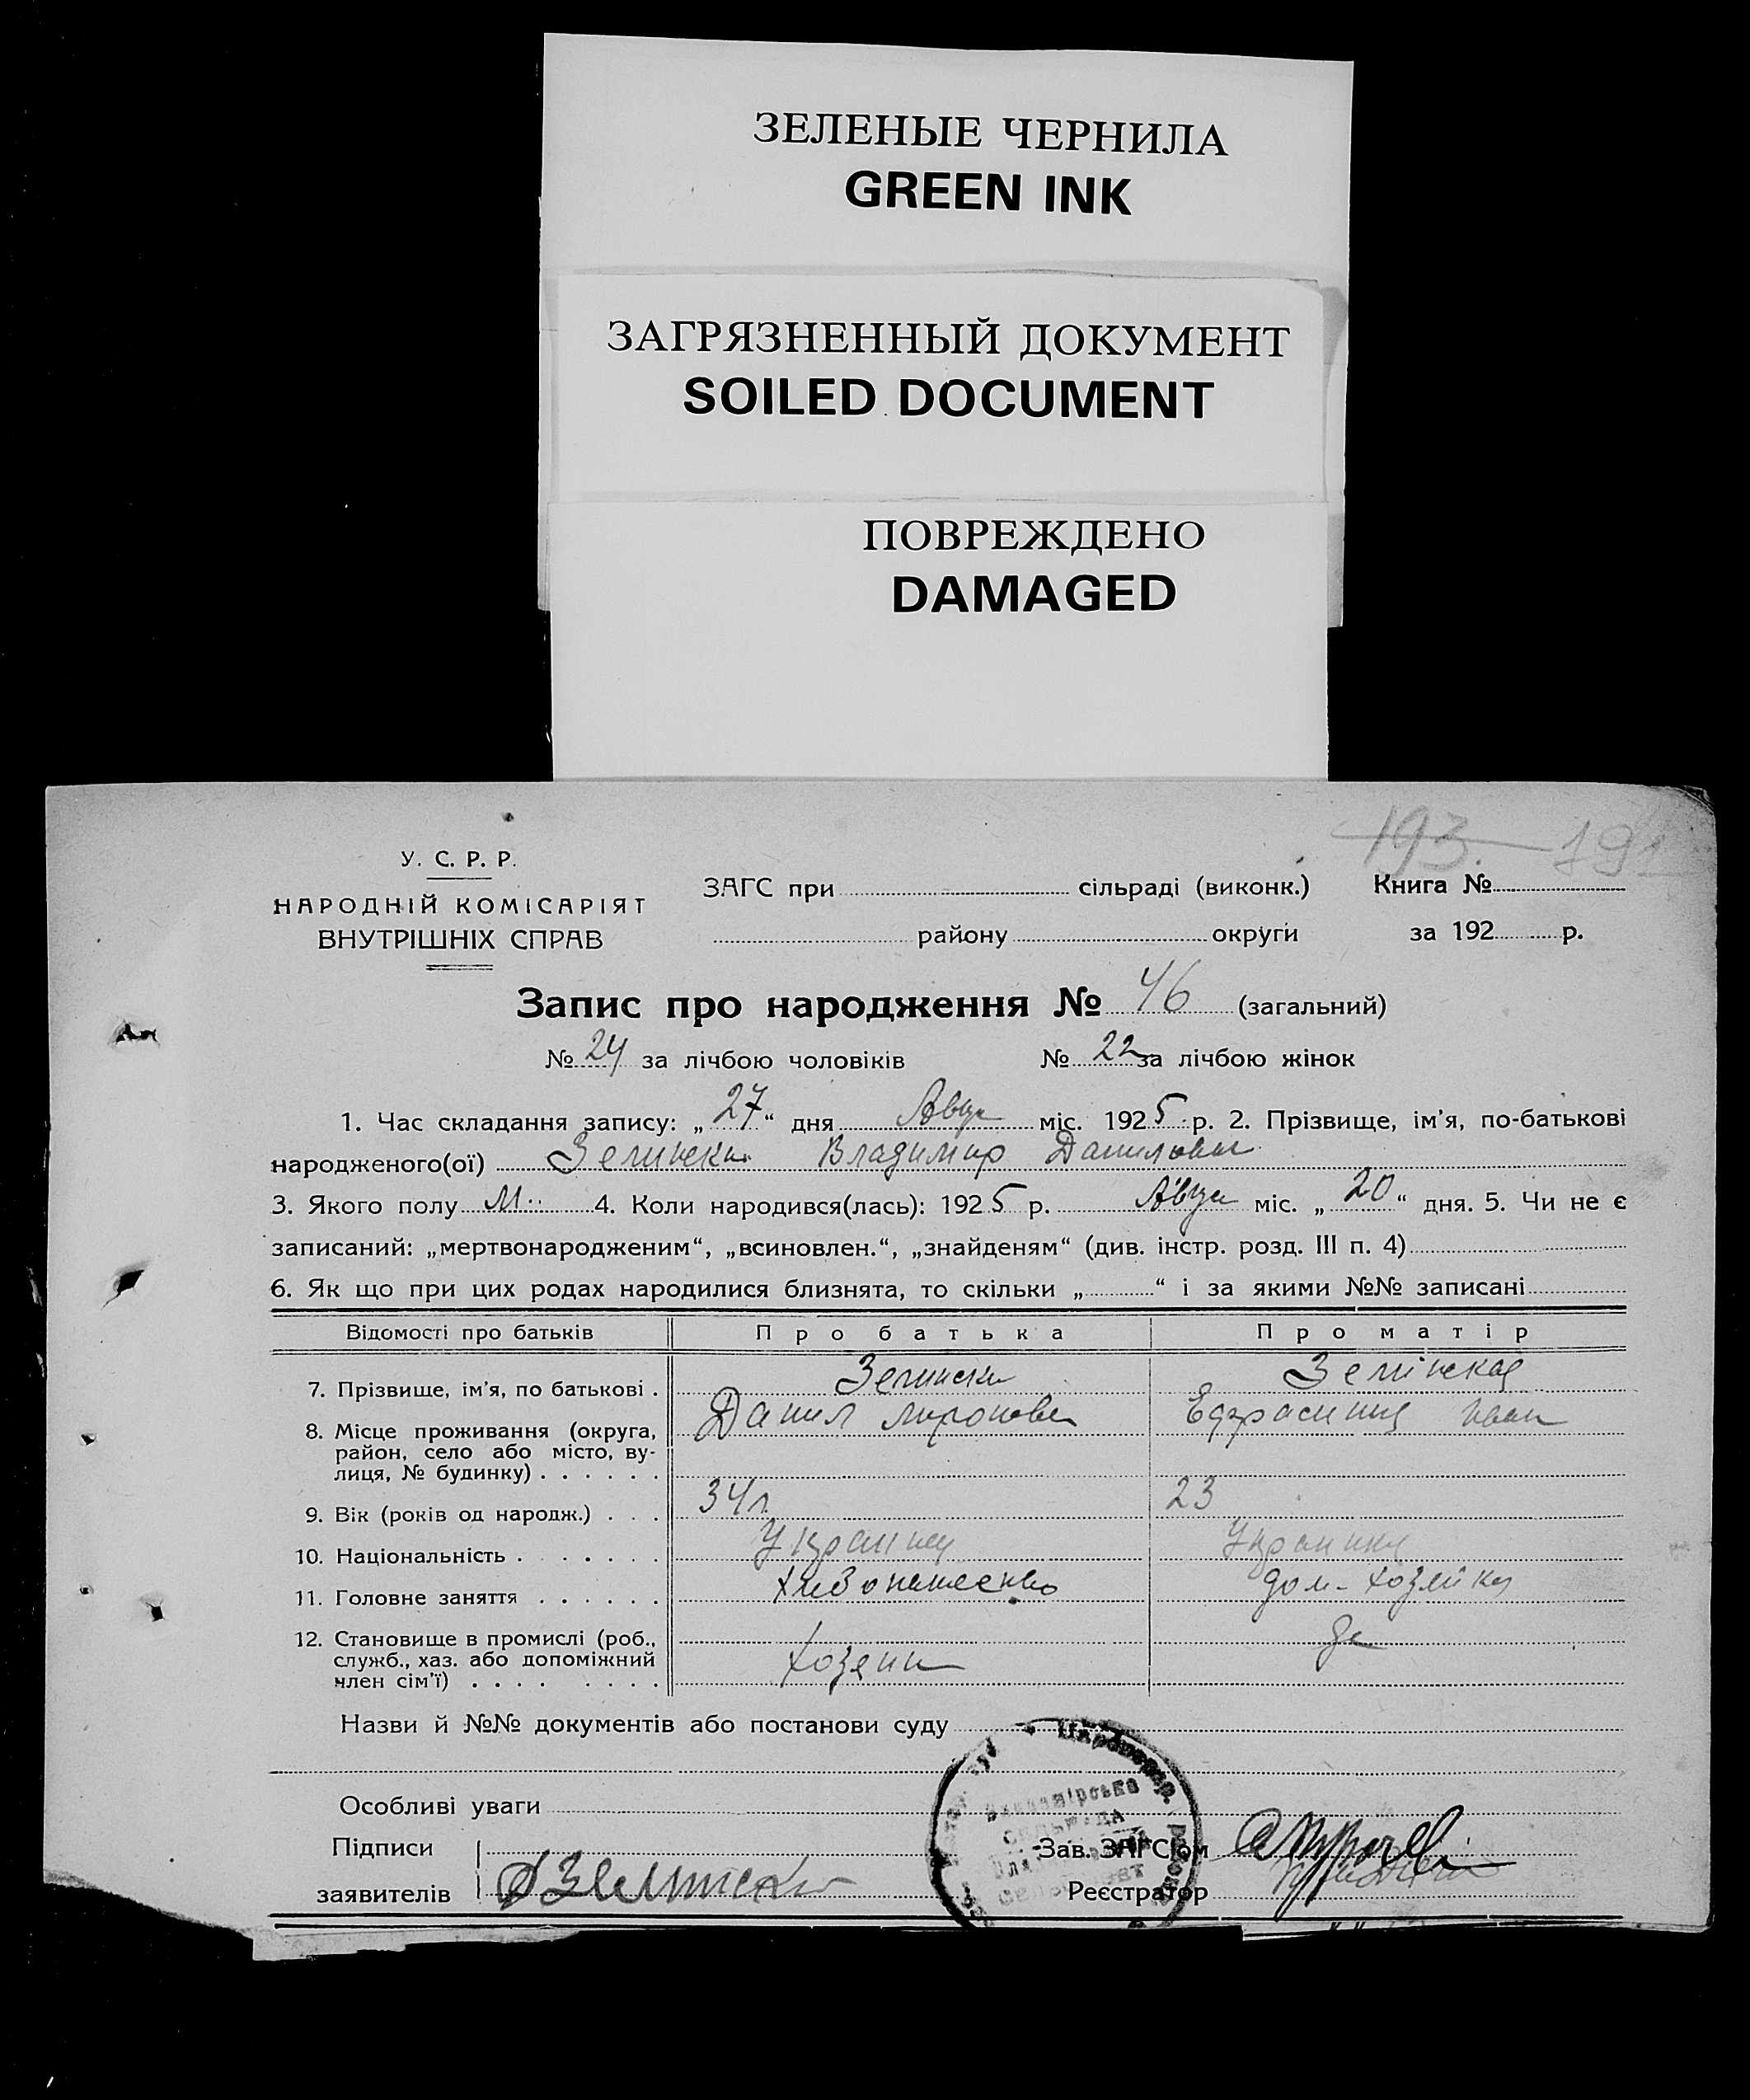 ЗЕЛЕНЫЕ ЧЕРНИЛА
GREEN INK
ЗАГРЯЗНЕННЫЙ ДОКУМЕНТ
SOILED DOCUMENT
ПОВРЕЖДЕНО
DAMAGED
193. 191
У. С. Р. Р.
НАРОДНІЙ КОМІСАРІЯТ
ВНУТРІШНІХ СПРАВ
ЗАГС при сільраді (виконк.) Книга №
району округи за 192 р.
Запис про народження № 46 (загальний)
№ 24 за лічбою чоловіків № 22 за лічбою жінок
1. Час складання запису: „27“ дня Авгу міс. 1925 р. 2. Прізвище, ім’я, по-батькові
народженого(ої) Зелински Владимир Данилович
3. Якого полу М. 4. Коли народився(лась): 1925 р. Авгу міс. „20“ дня. 5. Чи не є
записаний: „мертвонародженим“, „всиновлен.“, „знайденям“ (див. інстр. розд. III п. 4)
6. Як що при цих родах народилися близнята, то скільки „ “ і за якими №№ записані
Відомості про батьків Про батька Про матір
7. Прізвище, ім’я, по батькові . Зелински Зелінская
8. Місце проживання (округа, Данил Миронович Ефрасиния Иван
район, село або місто, ву-
лиця, № будинку) . . . . . .
9. Вік (років од народж.) . . . 34 л. 23
10. Національність . . . . . . . Украинец Украинка
11. Головне заняття . . . . . . дом-хозяйка
12. Становище в промислі (роб.,
служб., хаз. або допоміжний Хозяин
член сім’ї) . . . . . . . .
Назви й №№ документів або постанови суду
Особливі уваги
Підписи
Зав. ЗАГС’ом
заявителів Д Зелински
Реєстратор